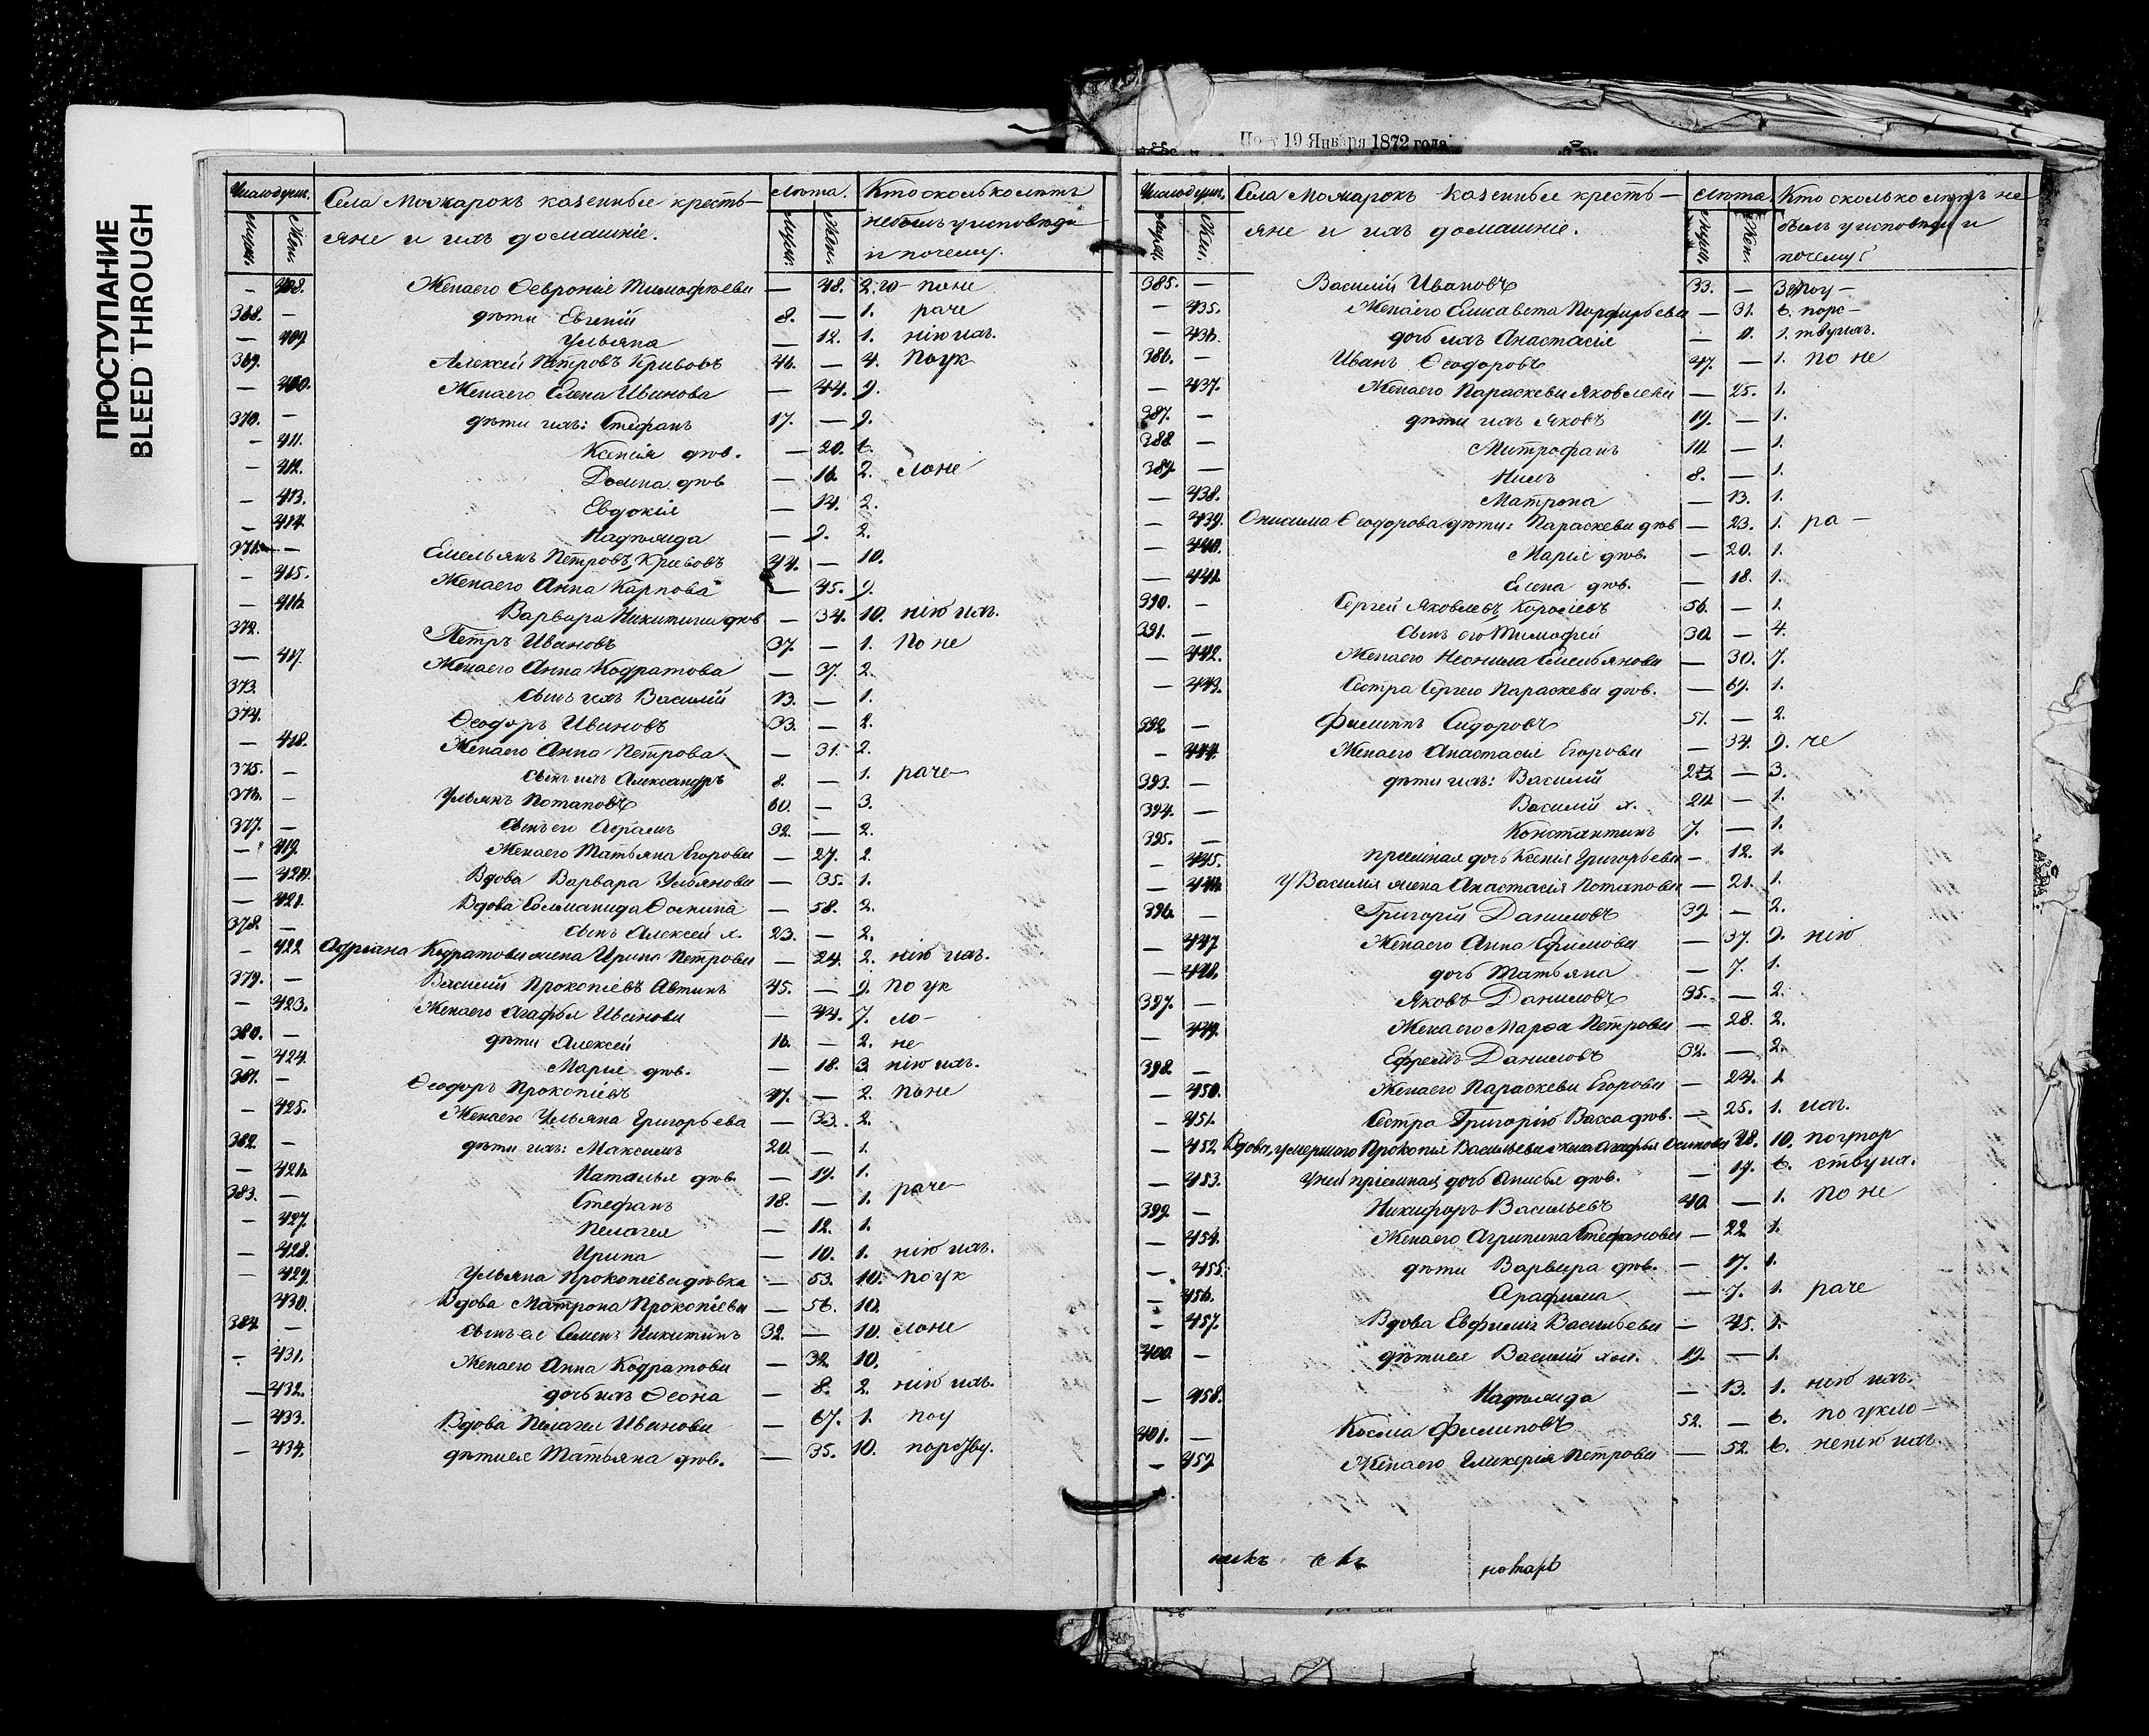 ПРОСТУПАНИЕ
BLEED THROUGH
19 Января 1872 года
Число душъ. Села Можарокъ казенные кресть- Лѣта. Кто сколько лѣтъ
Муж. Жен. яне и ихъ домашніе. Муж. Жен. небылъ у исповѣди
и почему.
— 408. Жена его Ѳевронія Тимофѣева — 48. 2.
368. — дѣти Евгеній 8. — 1. раче
— 409. Ульяна — 12. 1. нію ихъ.
369. Алексей Петровъ Кривовъ 46. — 4. По ук
— 410. Жена его Елена Иванова — 44. 9.
370. — дѣти ихъ: Стефанъ 17. — 9.
— 411. Ксенія дѣв. — 20. 6.
— 412. Домна дѣв — 16. 2. лоне
— 413. Евдокія — 14. 2.
— 414. Надѣжда — 9. 2.
371. — Емельянъ Петровъ Кривовъ 44. — 10.
— 415. Жена его Анна Карпова — 45. 9.
— 416. Варвара Никитина дѣв — 34. 10. нію ихъ.
372. Петръ Ивановъ 37. — 1. По не
— 417. Жена его Анна Кодратова — 37. 2.
373. сынъ ихъ Василій 13. — 1.
374. Ѳеодоръ Ивановъ 33. — 2.
— 418. Жена его Анна Петрова — 31. 2.
375. — сынъ ихъ Александръ 8. — 1. раче
376. — Ульянъ Потаповъ 60. — 3.
377. — сынъ его Абрамъ 32. — 2.
— 419. Жена его Татьяна Егорова — 27. 2.
— 420. Вдова Варвара Ульянова — 35. 1.
— 421. Вдова Соломанида Фомина — 58. 2.
378. — сынъ Алексей х. 23. — 2.
— 422 Адріана Кодратова жена Ирина Петрова — 24. 2. нію ихъ.
379. — Василій Прокопіевъ Автинъ 45. — 9. по ук
— 423. Жена его Агафья Иванова — 44. 7. ло-
380. — дѣти Алексей 16. — 2. не
— 424. Марія дѣв. — 18. 3. нію ихъ.
381. — Ѳеодоръ Прокопіевъ 47. — 2. По не
— 425. Жена его Ульяна Григорьева — 33. 2.
382. — дѣти ихъ: Максимъ 20. — 1.
— 426. Наталья дѣв. — 19. 1.
383. — Стефанъ 18. — 1. раче
— 427. Пелагея — 12. 1.
— 428. Ирина — 10. 1. нію ихъ.
— 429. Ульяна Прокопіева дѣвка — 53. 10. по ук
430. Вдова Матрона Прокопіева — 56. 10.
384. — сынъ ея Семенъ Никитинъ 32. — 10. лоне
— 431. Жена его Анна Кодратова — 32. 10.
— 432. дочь ихъ Ѳеона — 8. 2. нію ихъ.
— 433. Вдова Пелагея Иванова — 67. 1. поу
— 434. дѣти ея Татьяна дѣв. — 35. 10.
Число душъ. Села Можарокъ казенные кресть- Лѣта. Кто сколько лѣтъ не
Муж. Жен. яне и ихъ домашніе. Муж. Жен. былъ у исповѣди и
почему
385. — Василій Ивановъ 33. —
— 435. Жена его Елисавета Порфирьева — 31. 6.
— 436. дочь ихъ Анастасія — 11. 1.
386. — Иванъ Ѳеодоровъ 47. — 1. по не
— 437. Жена его Параскева Яковлева — 25. 1.
387. — дѣти ихъ Яковъ 19. — 1.
388. — Митрофанъ 11. — 1.
389. — Нилъ 8. — 1.
— 438. Матрона — 13. 1.
— 439. Онисима Ѳеодорова дѣти: Параскева дѣв — 23. 1. ра-
— 440. Марія дѣв. — 20. 1.
— 441. Елена дѣв. — 18. 1.
390. — Сергей Яковлевъ 56. — 1.
391. — сынъ его Тимофей 30. — 4.
— 442. Жена его Неонила Емельянова — 30. 7.
— 443. Сестра Сергею Параскева дѣв. — 69. 1.
392 — Филиппъ Сидоровъ 51. — 2.
— 444. Жена его Анастасія Егорова — 34. 9. че
393. — дѣти ихъ: Василій — 3.
394. — Василій х. — 1.
395. — Константинъ 7. — 1.
— 445. пріемная дочь Ксенія Григорьева — 12. 1.
— 446. У Василія жена Анастасія Потапова — 21. 1.
396. — Григорій Даниловъ 39. — 2.
— 447 Жена его Анна Ефимова — 37. 9. нію
— 448. дочь Татьяна — 7. 1.
397. — Яковъ Даниловъ 35. — 2.
— 449. Жена его Марѳа Петрова — 28. 2.
398. — Ефремъ Даниловъ 32. — 2.
— 450. Жена его Параскева Егорова — 24. 1
— 451. Сестра Григорію Васса дѣв. — 25. 1. ихъ.
— 452 Вдова, умершаго Прокопія Васильева жена Агафья Осипова 48. 10. по упор
— 453. У ней пріемная дочь Анисья дѣв. — 19. 6. ству
399. — Никифоръ Васильевъ 40. — 1. По не
— 454. Жена его Агрипина Стефанова — 22 1.
— 455. дѣти Варвара дѣв. — 17. 1.
— 456. — 7. 1. раче
— 457. Вдова Евфимія Васильева — 45. 1.
400. — дѣти ея Василій хол. 19. — 1.
— 458. Надѣжда — 13. 1. нію ихъ.
401. — Косма Филиповъ 52. — 6. по укло-
— 459 Жена его Гликерія Петрова — 52. 6. ненію ихъ.